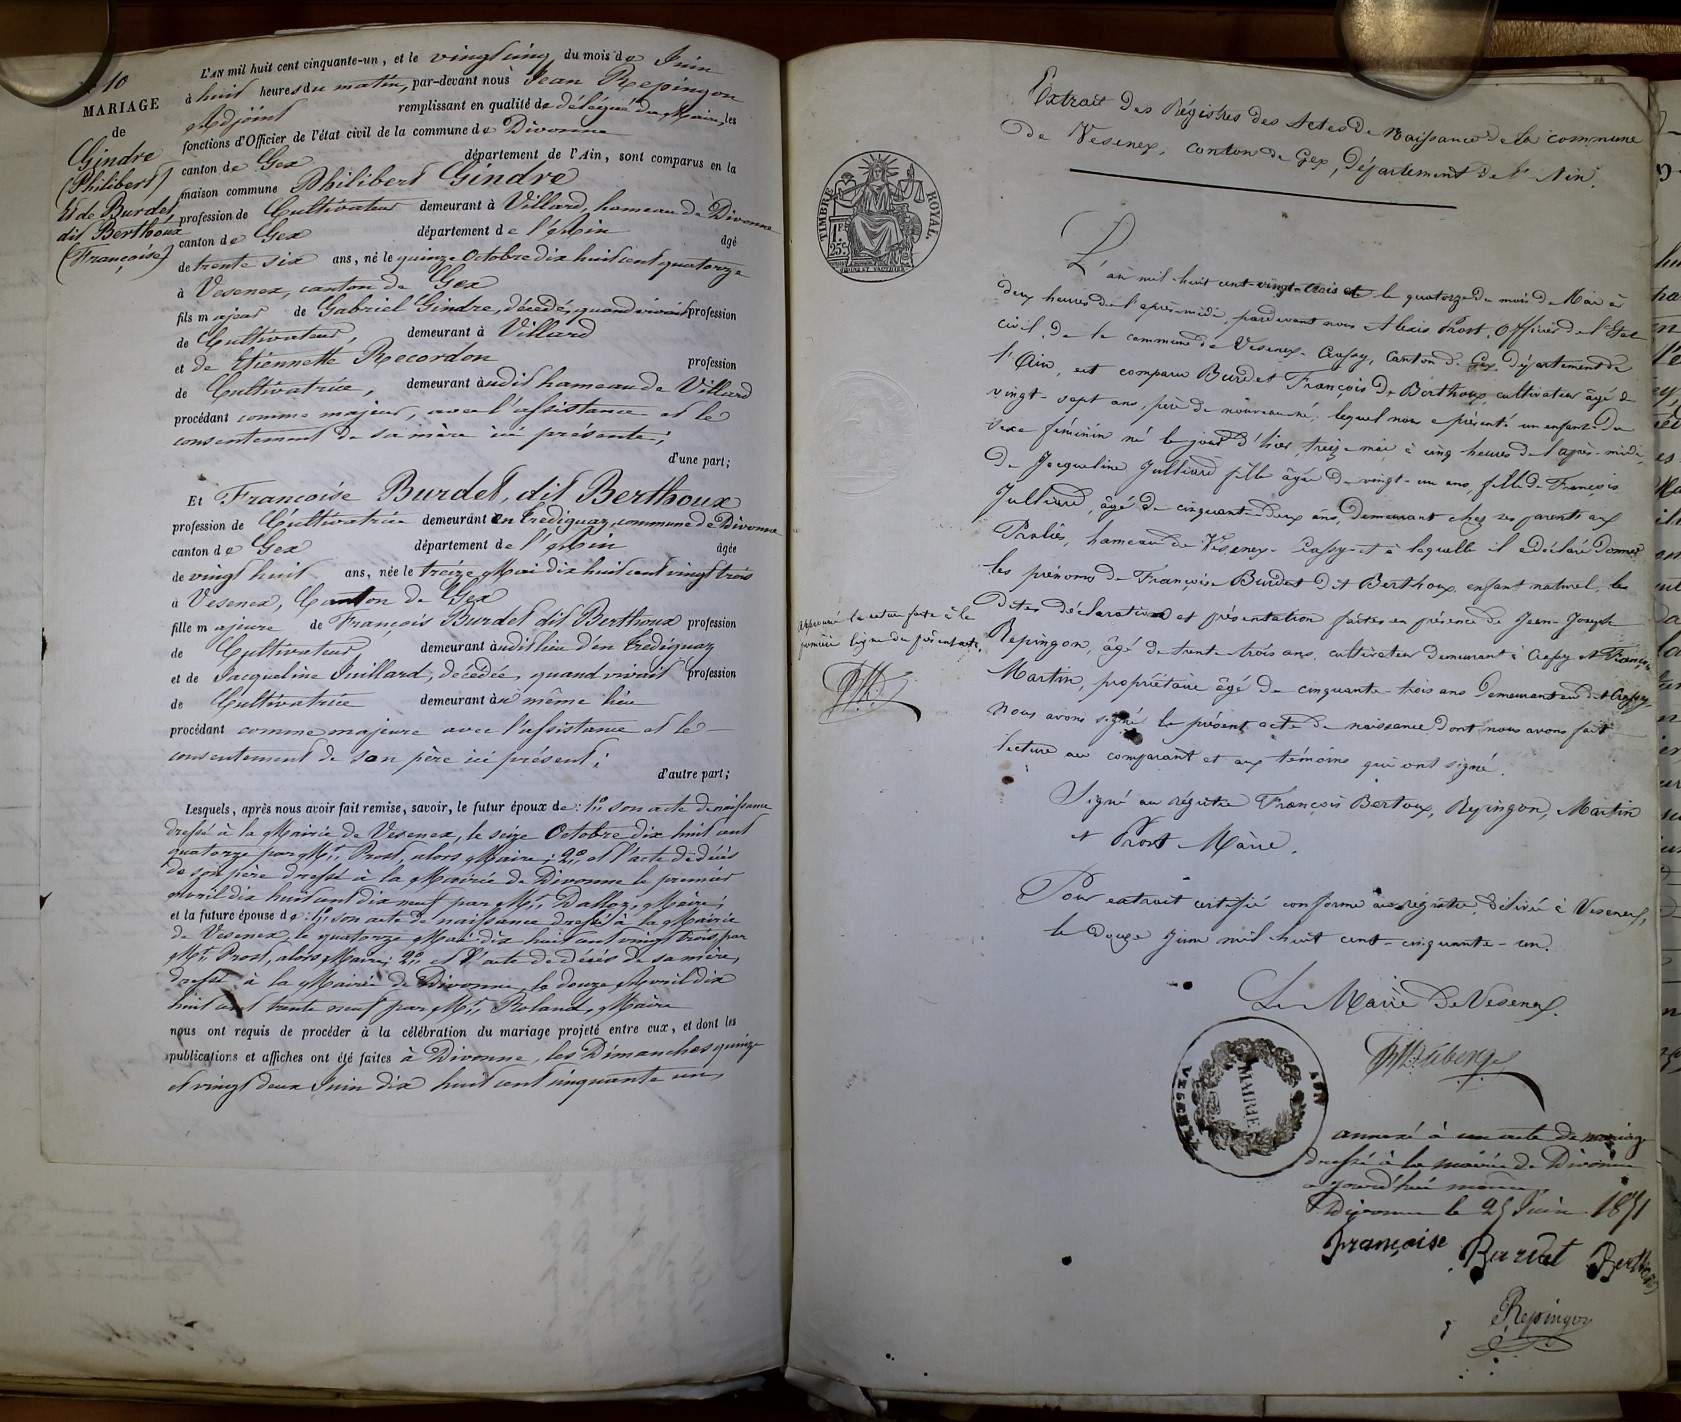 10
MARIAGE
de
Gindre
(Philibert)
Et de Burdet
dit Berthoux
(Françoise)
L'AN mil huit cent cinquante-un, et le vingt cinq du mois de Juin
à huit heures du matin, par-devant nous Jean Repingon
Adjoint remplissant en qualité de délégué du Maire, les
fonctions d'Officier de l'état civil de la commune de Divonne
canton de Gex département de l'Ain, sont comparus en la
maison commune Philibert Gindre
profession de Cultivateur demeurant à Villard, hameau de Divonne
canton de Gex département de l'Ain âgé
de trente six ans, né le quinze Octobre dix huit cent quatorze
à Vesenex, canton de Gex
fils majeur de Gabriel Gindre, décédé, quand vivait profession
de Cultivateur, demeurant à Villard
et de Etiennette Recordon profession
de Cultivatrice, demeurant àudit hameau de Villard
procédant comme majeur, avec l'assistance et le
consentement de sa mère ici présente;
d'une part;
Et Françoise Burdet, dit Berthoux
profession de Cultivatrice demeurant en Trediguaz, commune de Divonne
canton de Gex département de l'Ain âgée
de vingt huit ans, née le treize Mai dix huit cent vingt trois
à Vesenex, Canton de Gex
fille majeure de François Burdet dit Berthoux profession
de Cultivateur demeurant àudit lieu d'en Trediguaz
et de Jacqueline Juillard, décédée, quand vivait profession
de Cultivatrice demeurant àu même lieu
procédant comme majeure avec l'assistance et le
consentement de son père ici présent;
d'autre part;
Lesquels, après nous avoir fait remise, savoir, le futur époux de: 1° son acte de naissance
dressé à la Mairie de Vesenex, le seize Octobre dix huit cent
quatorze par Mr Prost, alors Maire; 2° et l'acte de décès
de son père dressé à la Mairie de Divonne le premier
avril dix huit cent dix neuf par Mr Dalloz, Maire;
et la future épouse de: 1° son acte de naissance dressé à la Mairie
de Vesenex le quatorze Mai dix huit cent vingt trois, par
Mr Prost, alors Maire; 2° et l'acte de décès de sa mère,
dressé à la Mairie de Divonne le douze Avril dix
huit cent trente neuf par Mr Roland, Maire
nous ont requis de procéder à la célébration du mariage projeté entre eux, et dont les
publications et affiches ont été faites à Divonne, les Dimanches quinze
et vingt deux Juin dix huit cent cinquante un,
Extrait des Régistres des Actes de Naissance de la commune
de Vesenex, canton de Gex, Département de l'Ain.
TIMBRE ROYAL
L'an mil-huit cent-vingt-trois et le quatorze du mois de Mai à
deux heures de l'après-midi, pardevant nous Alexis Prost, Officier de l'Etat
civil de la commune de Vesenex-Crassy, Canton de Gex, département de
l'Ain, est comparu Burdet François De Berthoux, cultivateur âgé de
vingt-sept ans, père du nouveau né, lequel nous a présenté un enfant du
sexe féminin né le jour d'hier, treize mai à cinq heures de l'après-midi,
de Jacqueline Julliard fille âgée de vingt-un ans, fille de François
Julliard, âgé de cinquante-deux ans, Demeurant chez ses parents aux
hameau de Vesenex-Crassy et à laquelle il a déclaré donner
les prénoms de Françoise Burdet Dit Berthoux, enfant naturel, les
dites déclaration et présentation faites en présence de Jean-Joseph
Repingon, âgé de trente-trois ans, cultivateur demeurant à Crassy et François
Martin, propriétaire âgé de cinquante-trois ans Demeurant audit Crassy
Nous avons signé le présent acte de naissance dont nous avons fait
lecture au comparant et aux témoins qui ont signé.
Signé au régistre François Bertoux, Repingon, Martin
et Prost Maire.
Approuvé la rature faite à la
première ligne du présent acte.
Pour extrait certifié conforme au régistre, délivré à Vesenex,
le douze Juin mil huit cent-cinquante-un.
Le Maire De Vesenex.
MAIRIE
VESENEX
AIN
annexé à un acte de mariage
dressé à la mairie de Divonne
aujourd'hui même
Divonne le 25 Juin 1851
françoise Burdet Berthoux
Repingon